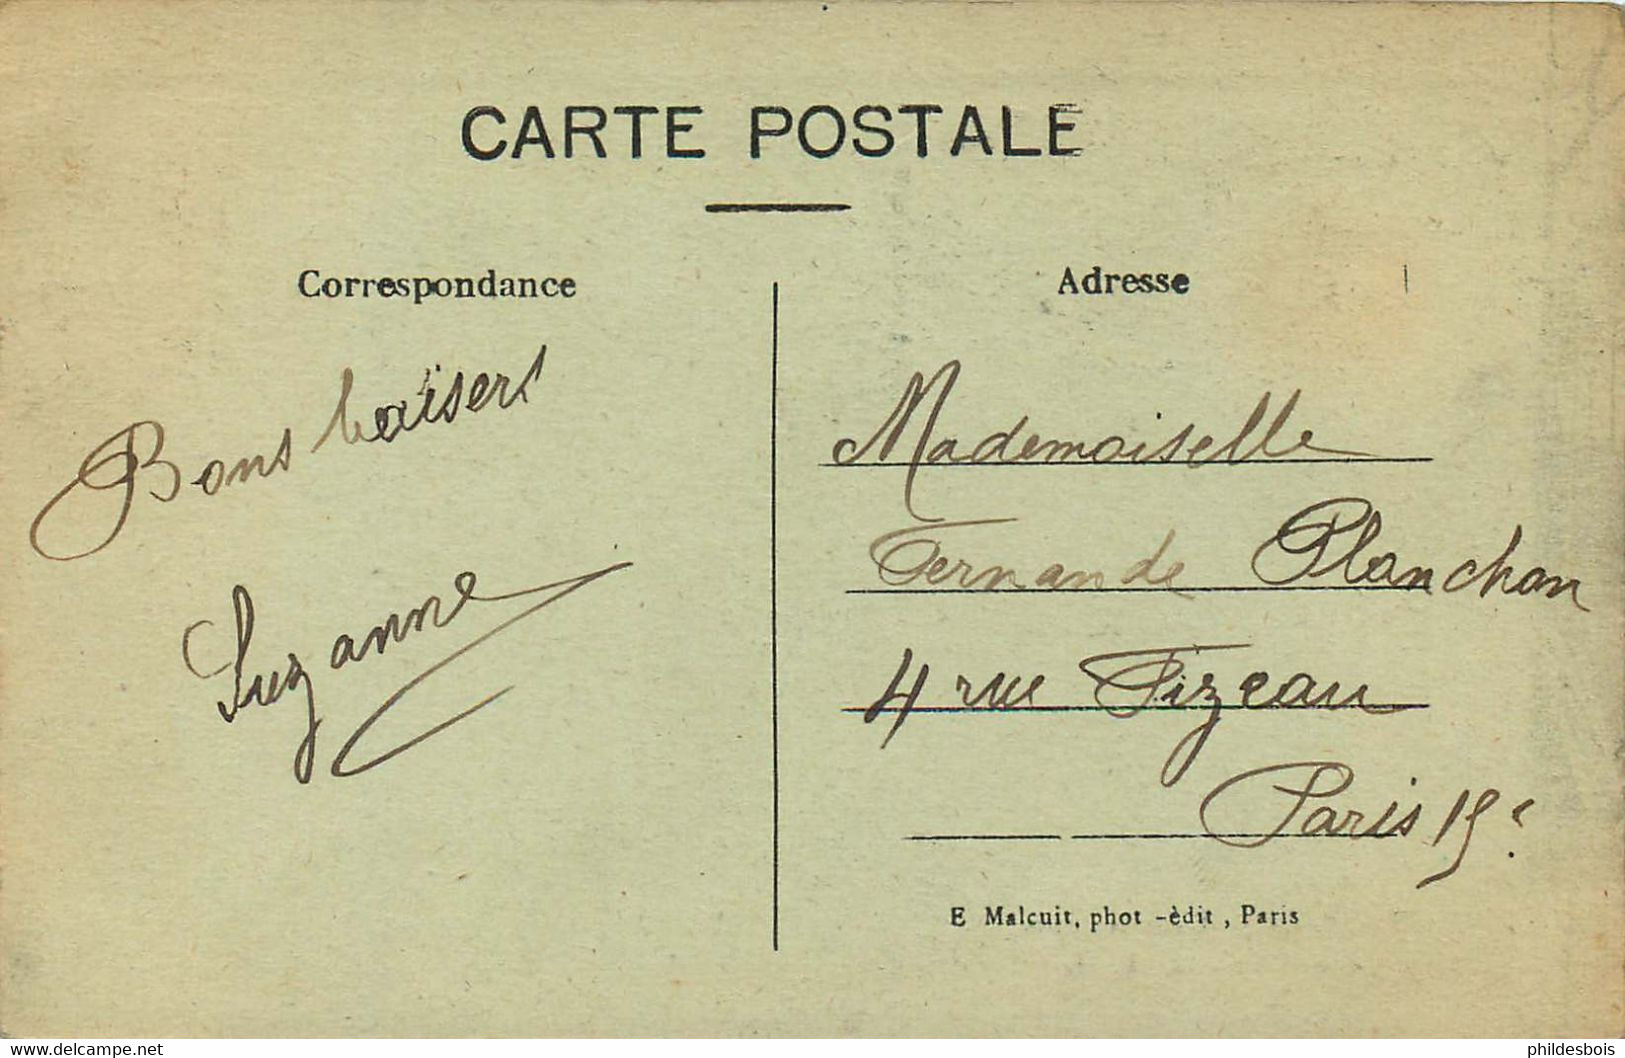 CARTE POSTALE
Correspondance
Bons baisers
Suzanne
Adresse
Mademoiselle
Fernande Planchon
4 rue Fizeau
Paris 15e.
E Malcuit, phot -èdit, Paris
www.delcampe.net
phildesbois